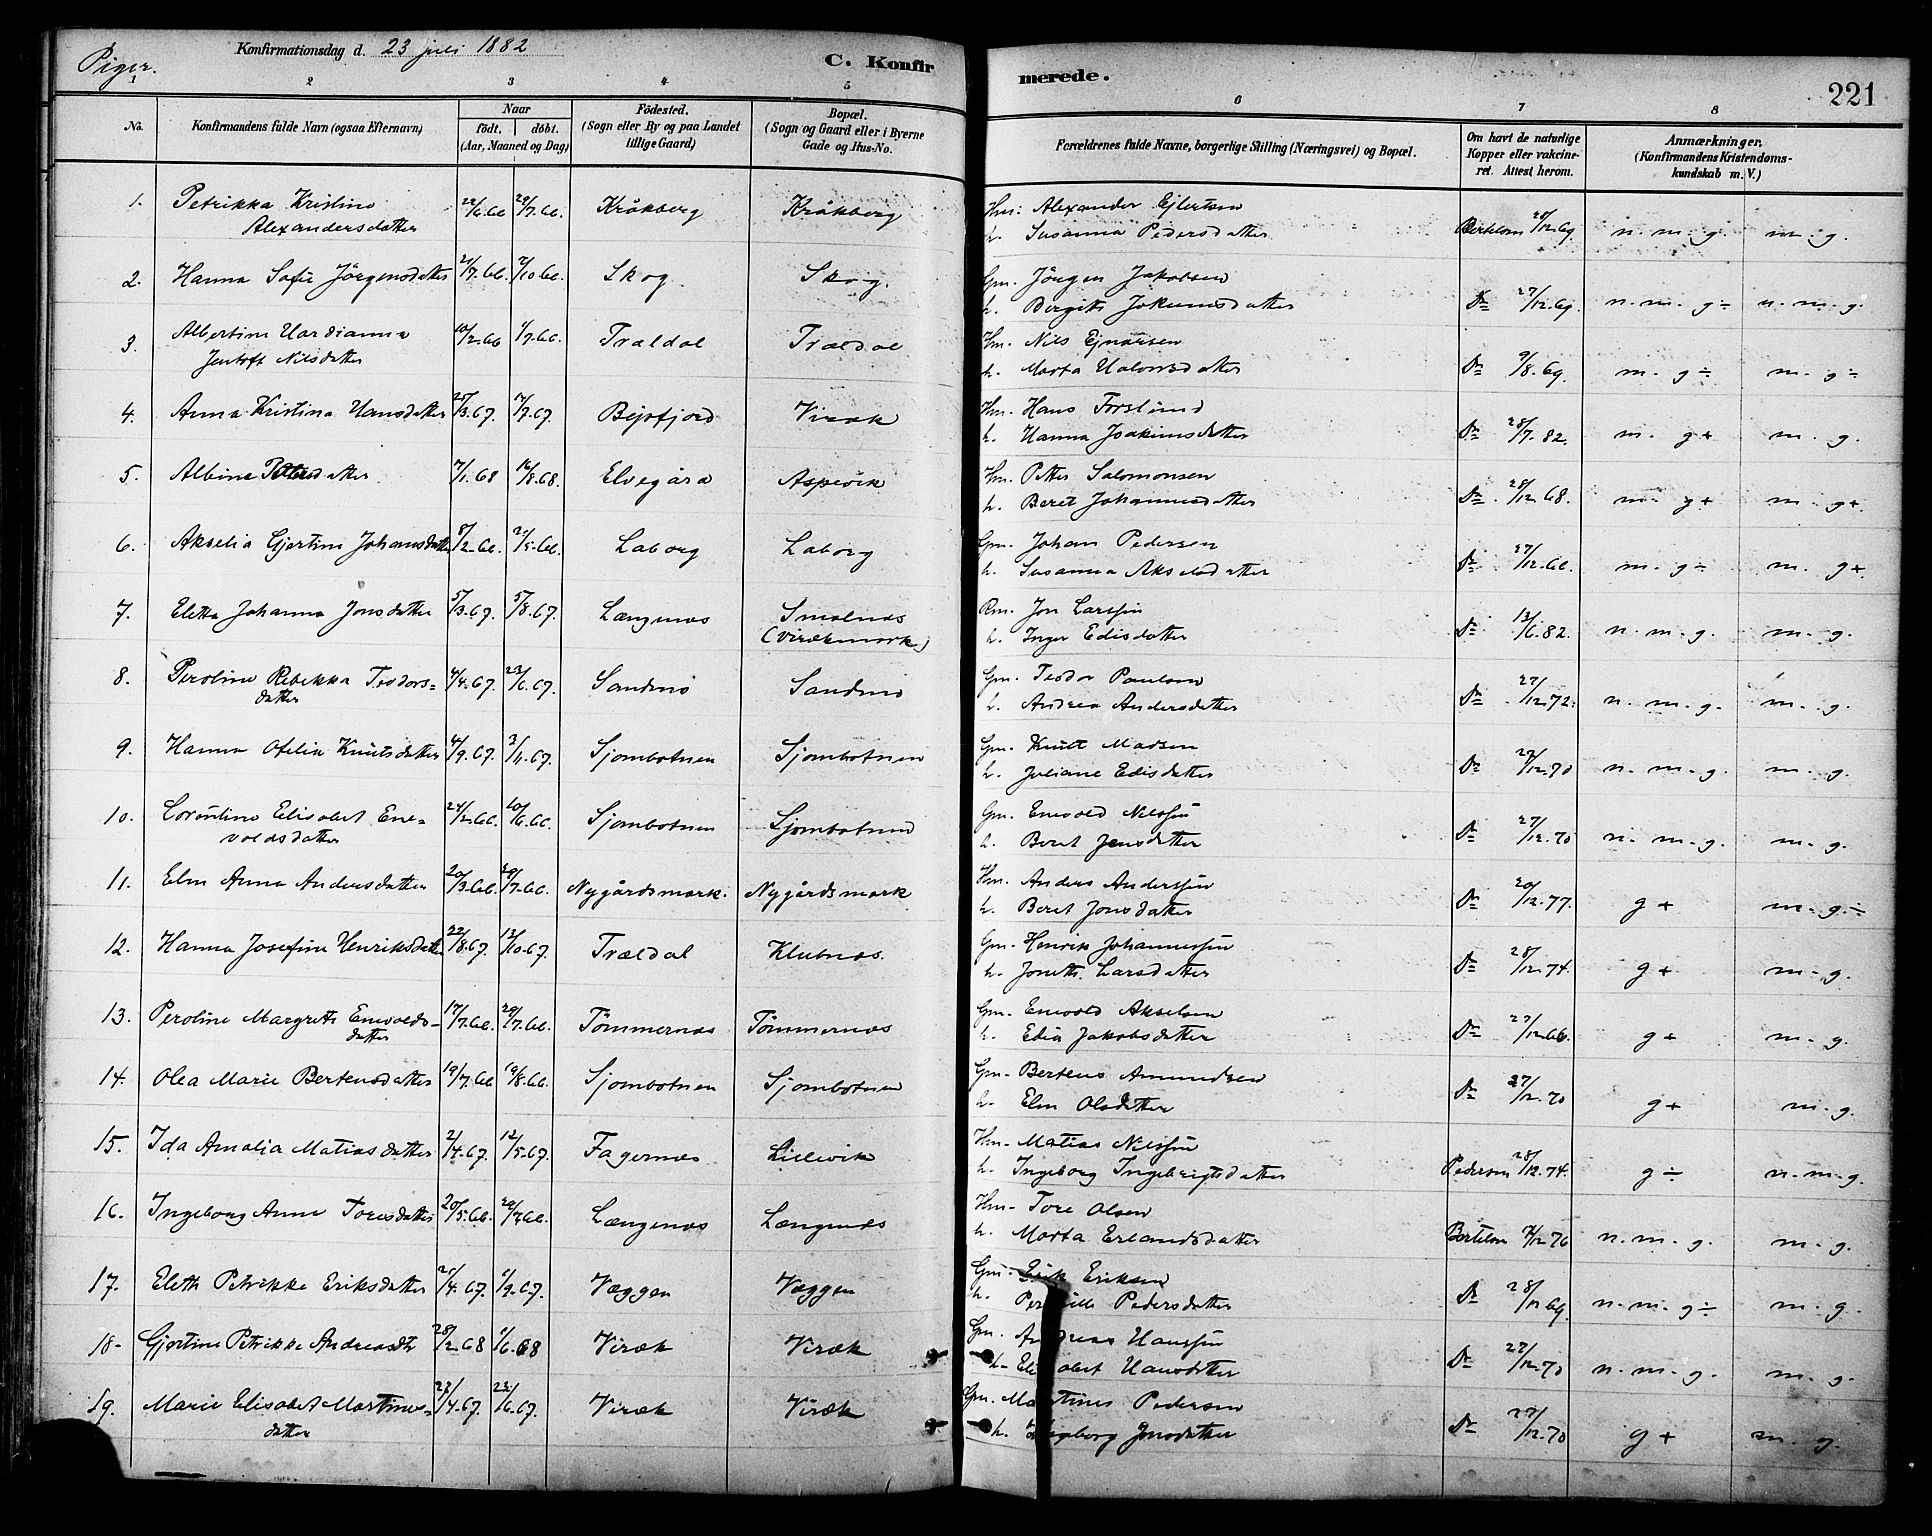 Piger.
Konfirmationsdag d. 23 juli 1882
C. Konfirmerede.
221
1 2 3 4 5 6 7 8
No.
Konfirmandens fulde Navn (ogsaa Efternavn)
Naar
födt. döbt.
(Aar, Maaned og Dag)
Födested.
(Sogn eller By og paa Landet
tillige Gaard)
Bopæl.
(Sogn og Gaard eller i Byerne
Gade og Hus-No.
Forældrenes fulde Navne, borgerlige Stilling (Næringsvei) og Bopæl.
Om havt de naturlige
Kopper eller vakcine-
ret. Attest herom.
Anmærkninger.
(Konfirmandens Kristendoms-
kundskab m. V.)
1. Petrikka Kristine 22/6.66 29/7.66. Kråkberg Kråkberg Hm. Alexander Ejlertsen
Alexandersdatter h. Susanna Pedersdatter Bertelsen 20/12.69. n. m. g. m. g.
2. Hanna Sofie Jörgensdatter 21/7.66. 7/10.66. Skog Skog. Gm. Jörgen Jakobsen
h. Bergith Jokumsdatter Do 27/12.69. n. m. g ÷ n. m. g.
3. Albertine Hardianna 10/2.66 1/7.66. Trældal Trældal Hm. Nils Ejnarsen
Jentoft Nilsdatter h. Marta Halvorsdatter Do 9/8.69. m. g ÷ m. g ÷
4. Anna Kristina Hansdatter 25/3.67. 7/7.67. Bejsfjord Viræk Hm. Hans Forslund
h. Hanna Joakimsdatter Do 28/7.82. m. g + m. g.
5. Albine Petersdatter 7/1.68 16/8.68. Elvegård Aspevik Hm. Petter Salomonsen
h. Beret Johannesdatter Do 28/12.68. m. g + m. g +
6. Akselia Gjertine Johansdatter 8/2.66. 21/5.66. Laborg Laborg Gm. Johan Pedersen
h. Susanna Akselsdatter Do 27/12.66. m. g ÷ m. g +
7. Eletta Johanna Jonsdatter 5/3.67. 5/8.67. Længenæs Smalnæs Rm. Jon Larssen
(Virækmark) h. Inger Edisdatter Do 13/6.82. n. m. g. m. g.
8. Peroline Rebekka Teodors- 4/4.67. 23/6.67. Sandmo Sandmo Gm. Teodor Paulsen
datter h. Andrea Andersdatter Do 27/12.72. n. m. g. m. g.
9. Hanna Ofelia Knutsdatter 4/9.67. 3/11.67. Sjombotnen Sjombotnen Gm. Knut Madsen
h. Juliane Edisdatter Do 27/12.70 n. m. g. m. g.
10. Lorentine Elisabet Ene- 24/2.66. 10/6.66. Sjombotnen Sjombotnen Gm. Enevold Nilssen
voldsdatter h. Beret Jensdatter Do 27/12.70 n. m. g. m. g.
11. Elen Anna Andersdatter 20/3.66. 29/7.66. Nygårdsmark. Nygårdsmark Hm. Anders Anderssen
h. Beret Jonsdatter Do 20/12.77. g + m. g. ÷
12. Hanna Josefine Henriksdatter 22/8.67. 13/10.67. Trældal Klubnæs. Gm. Henrik Johannessen
h. Joneth. Larsdatter Do 28/12.74. g + m. g.
13. Peroline Margrete Enevolds- 17/7.66. 29/7.66. Tömmernæs Tömmernæs Gm. Enevold Akselsen
datter h. Edia Jakobsdatter Do 27/12.66. g + m. g.
14. Olea Marie Bertensdatter 19/7.66 19/8.66. Sjombotnen Sjombotnen Gm. Berteus Amundsen
h. Elen Olsdatter Do 27/12.70 g + m. g.
15. Ida Amalia Matiasdatter 2/4.67. 12/5.67. Fagernæs Lillevik Hm. Matias Nilssen
h. Ingeborg Ingebrigtsdatter Pedersen 28/12.74. g ÷ n. m. g.
16. Ingeborg Anna Toresdatter 20/5.66. 29/7.66. Længenæs Længenæs Hm. Tore Olsen
h. Marta Erlandsdatter Bertelsen 7/12.76 n. m. g. m. g.
17. Eleth Petrikke Eriksdatter 21/4.67. 1/9.67. Væggen Væggen Gm. Erik Eriksen
h. Pernille Pedersdatter Do 28/12.69. n. m. g ÷ m. g.
18. Gjertine Petrikke Andreasdt 28/2.68 1/6.68 Viræk Viræk Gm. Andreas Hanssen
h. Elisabet Hansdatter Do 27/12.70 n. m. g. m. g.
19. Marie Elisabet Martines- 27/4.67. 23/6.67. Viræk Viræk Gm. Martines Pedersen
datter h. Ingeborg Jonsdatter Do 27/12.70 g + m. g.